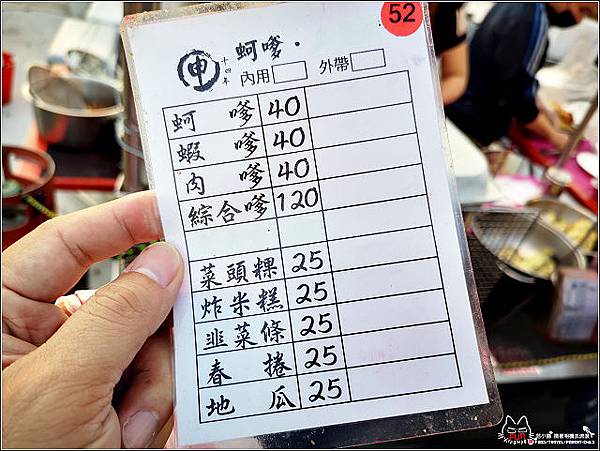 52
申
十四年
蚵嗲.
內用 外帶
蚵嗲 40
蝦嗲 40
肉嗲 40
綜合嗲 120
菜頭粿 25
炸米糕 25
韭菜條 25
春捲 25
地瓜 25